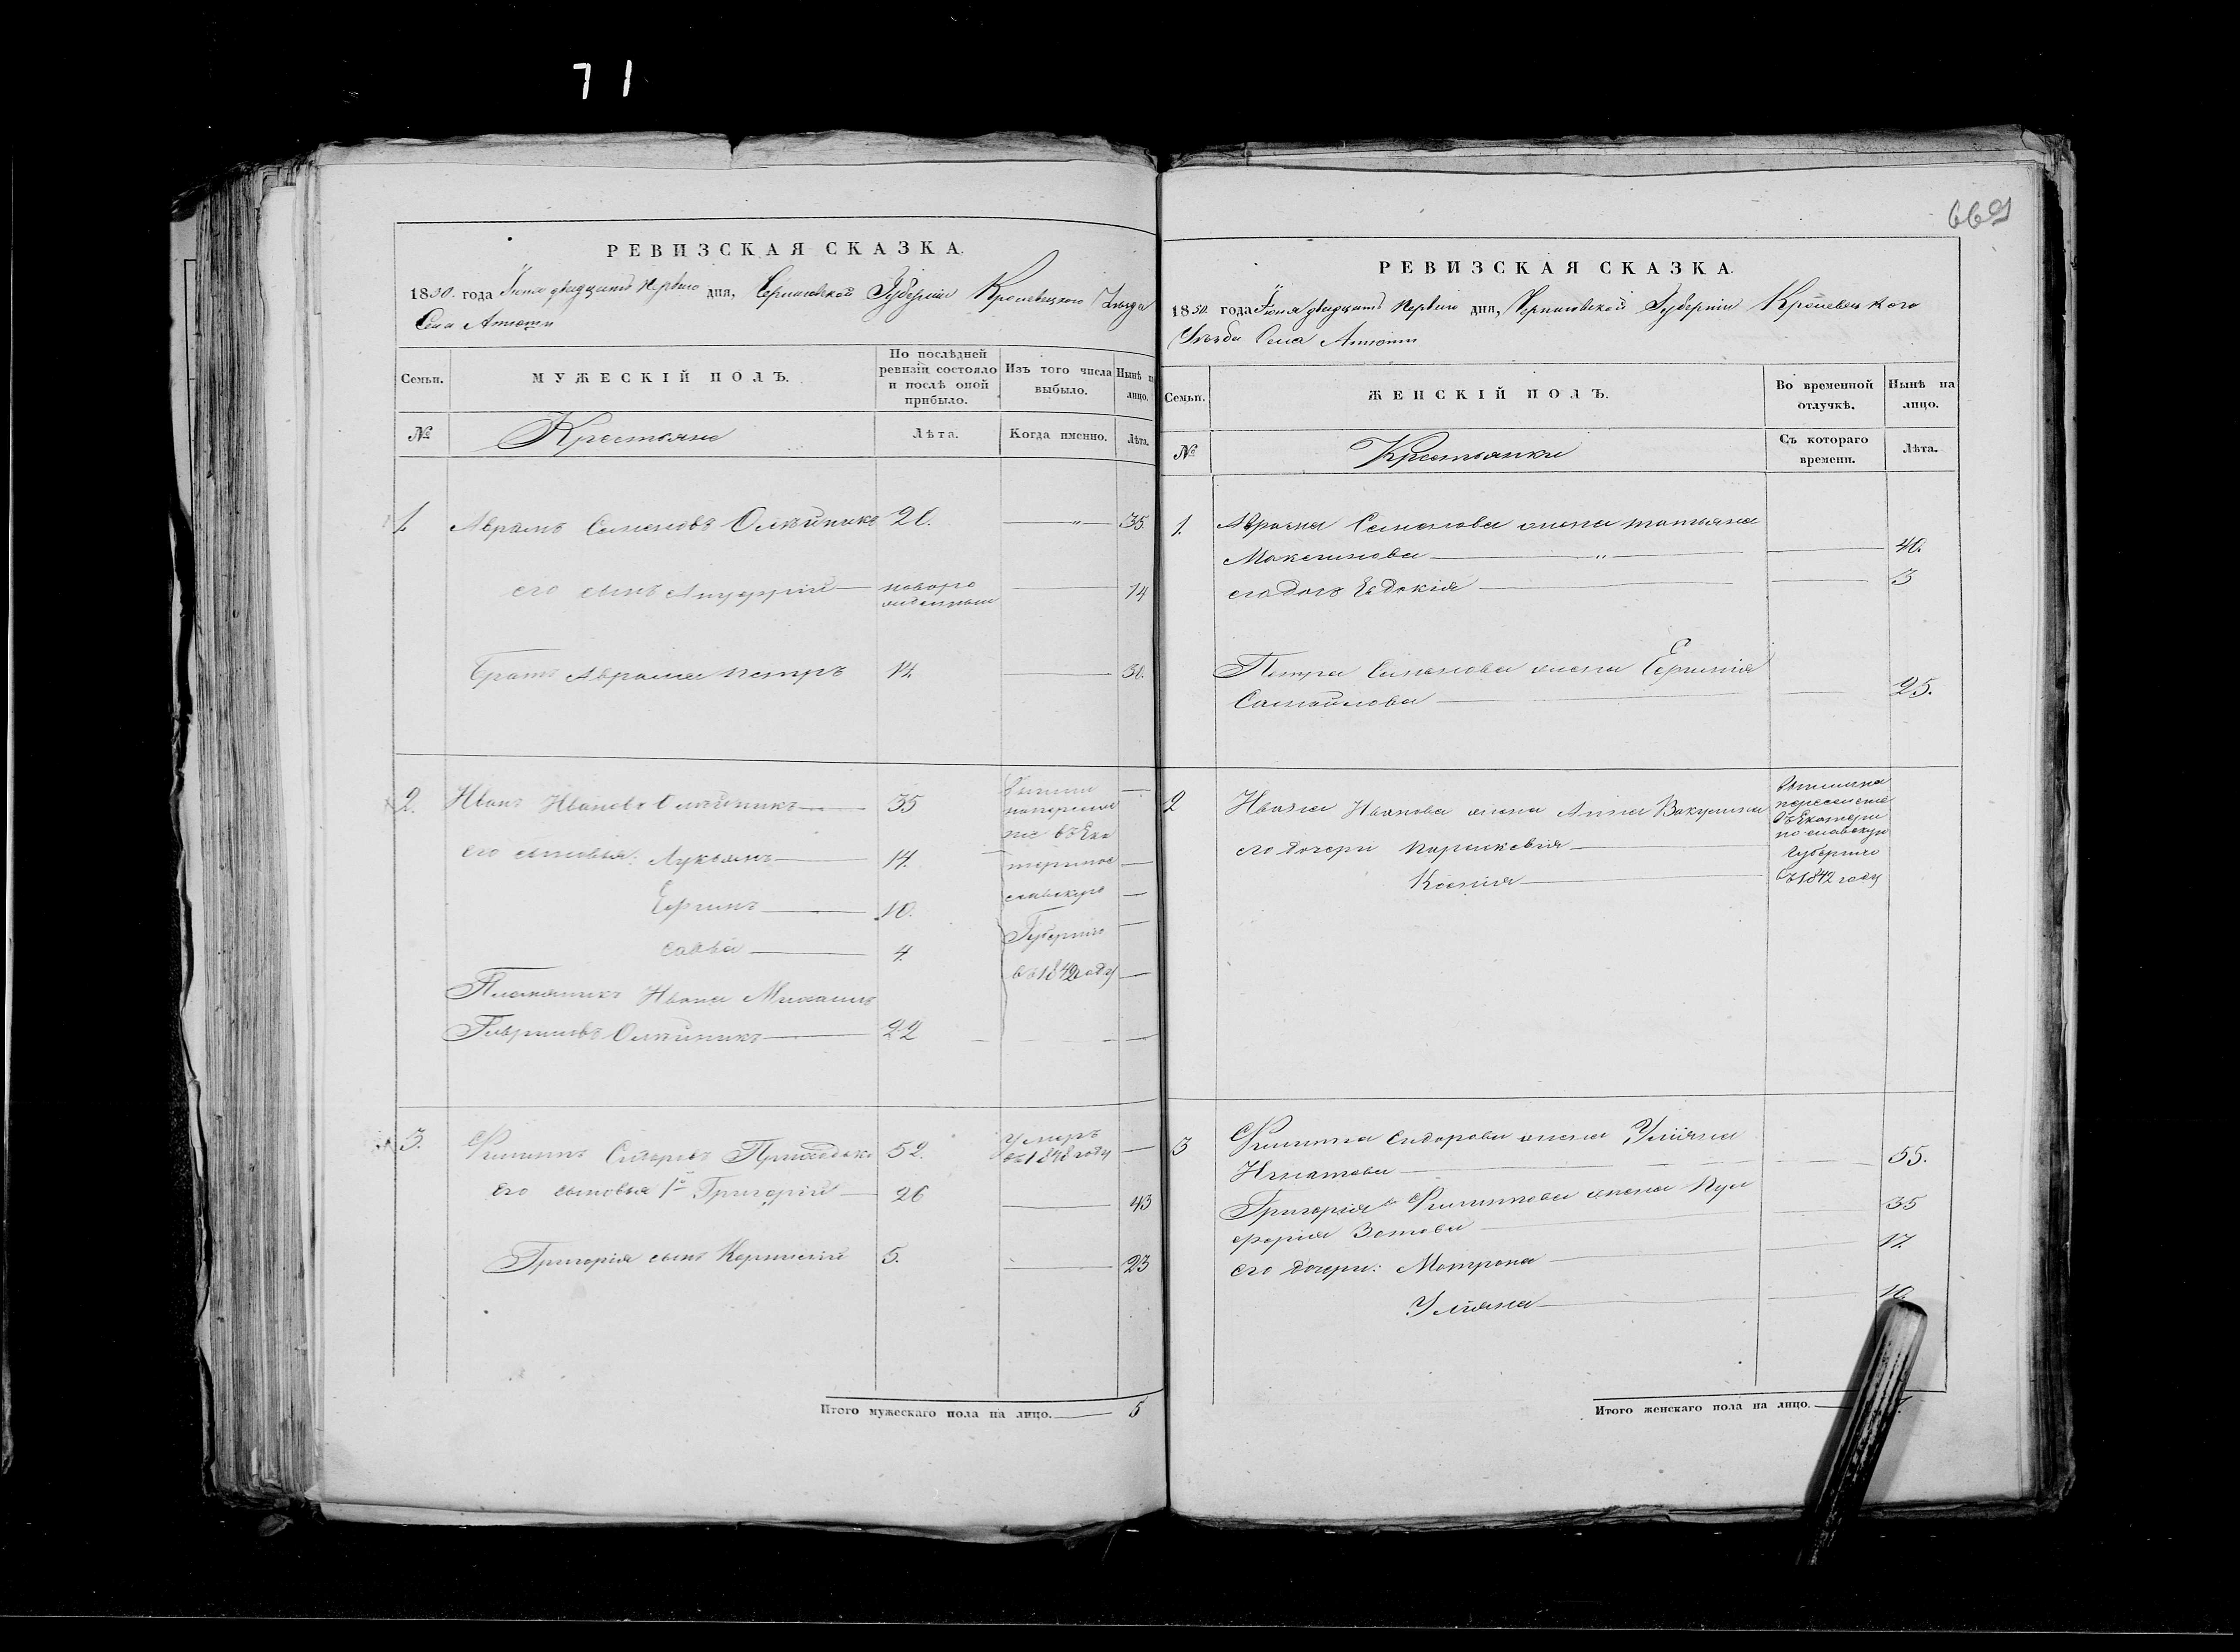 71
669
РЕВИЗСКАЯ СКАЗКА.
1850. года Іюня двадцать Первого дня, Черниговской Губерніи Кролевецкого Уезда
Села
М У Ж Е С К І Й П О Л Ъ.
Семьи.
По послѣдней ревизіи состояло и послѣ оной прибыло.
Изъ того числа выбыло.
Нынѣ на лицо.
№
Крестьяне
Лѣта.
Когда именно.
Лѣта.
1. Аврамъ Семеновъ Олѣйникъ 20. 35.
его сынъ Ануфрій новоро 14
жденный
Братъ Аврама Петръ 14. 30.
2. Иванъ Ивановъ Олѣйникъ 35
его сыновья: Лукьянъ 14.
Ефимъ 10.
Савва 4.
въ Ека
теринос
лавскую
Губернію
въ 1842 году
Племяникъ Ивана Михаилъ
Гавриловъ Олѣйникъ 22
3. Филиппъ Сидоровъ 52. Умеръ
въ 1848 году
Его сыновья 1й Григорій 26 43
Григорія сынъ Корнилій 5. 23
Итого мужескаго пола на лицо. 5
РЕВИЗСКАЯ СКАЗКА.
1850. года Іюня двадцать Первого дня, Черниговской Губерніи Кролевецкого
Уезда Села
Семьи.
Ж Е Н С К І Й П О Л Ъ.
Во временной отлучкѣ.
Нынѣ на лицо.
№
Крестьянки
Съ котораго времени.
Лѣта.
1. Аврама Семенова жена татьяна
Максимова 40.
его дочь Евдокія 3
Петра Семенова жена Ефимія
Самойлова 25.
2 Ивана Ивановa жена Анна
его дочери Парасковія
Ксенія
въ Екатери
нославскую
Губернію
въ 1842 году
3 Филиппа Сидорова жена Уліяна
Игнатова 55.
Григорія Филиппова жена Пул
ферія Зотова 35
его дочери: Матрона 17.
Уліяна 10
Итого женскаго пола на лицо.